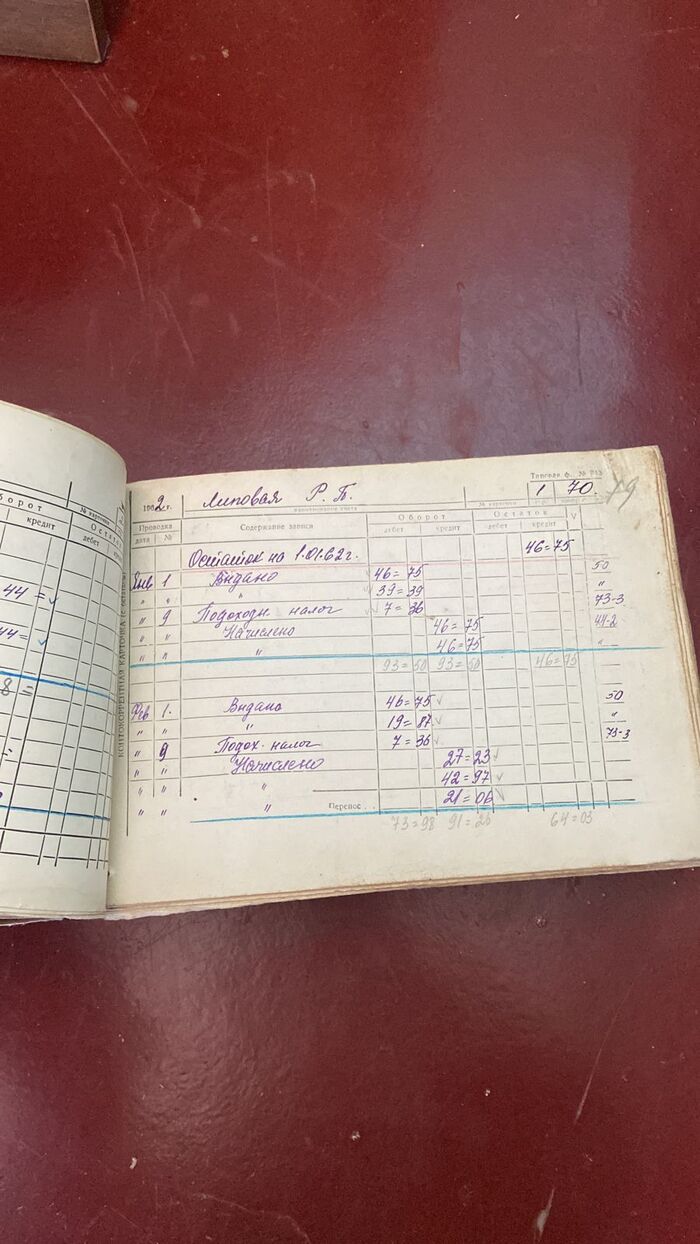 оборот
№ карточки
Остаток
кредит
дебет
кредит
44 =
44 =
8 =
КОНТОКОРРЕНТНАЯ КАРТОЧКА
Типовая ф. №
1962 г. Липовая Р. Б. 1 70. 79
наименование счета № карточки
Проводка Содержание записи Оборот Остаток
дата № дебет кредит дебет кредит
Остаток на 1.01.62г. 46=75
Янв 1 Выдано 46=75 50
" " " 39=39 "
" 9 Подоходн. налог 7=36 73-3
" " Начислено 46=75 44-2
" " " 46=75 "
93=50 93=50 46=75
Фев 1. Выдано 46=75 50
" " " 19=87 "
" 9 Подох. налог 7=36 73-3
" " Начислено 27=23
" " " 42=97
" " " Перенос . . 21=06
73=98 91=26 64=03